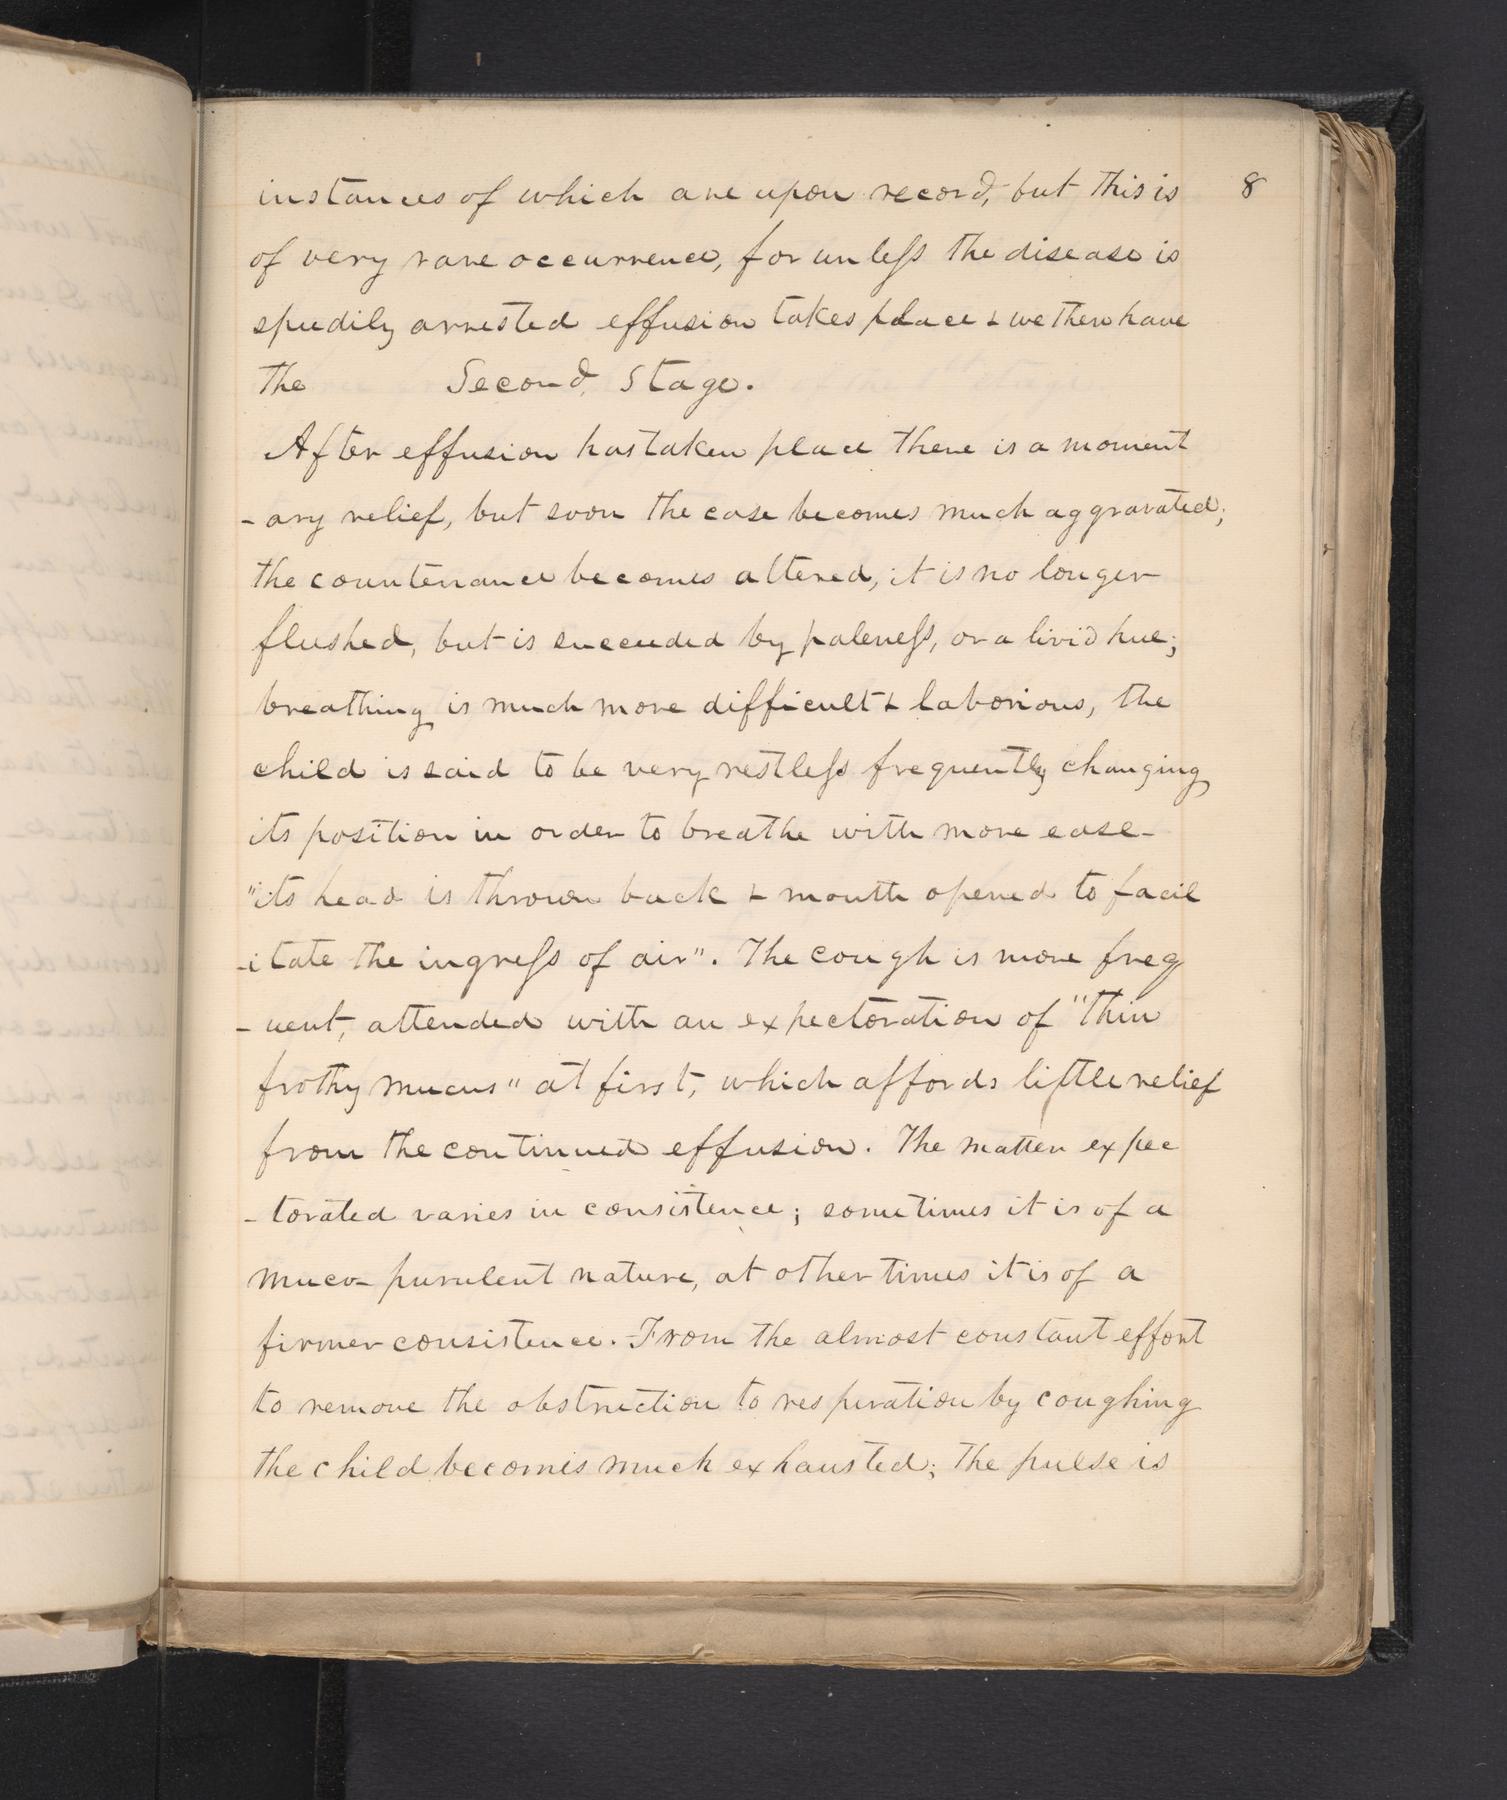 8
instances of which are upon record, but this is
of very rare occurrence, for unless the disease is
speedily arrested effusion takes place & we then have
the Second Stage.
After effusion has taken place there is a moment
-ary relief, but soon the case becomes much aggravated;
the countenance becomes altered, it is no longer
flushed, but is succeeded by paleness, or a livid hue;
breathing is much more difficult & laborious, the
child is said to be very restless frequently changing
its position in order to breathe with more ease-
"its head is thrown back & mouth opened to facil
-itate the ingress of air". The cough is more freq
-uent, attended with an expectoration of "thin
frothy mucus" at first, which affords little relief
from the continued effusion. The matter expec
-torated varies in consistence; sometimes it is of a
muco-purulent nature, at other times it is of a
firmer consistence. From the almost constant effort
to remove the obstruction to respiration by coughing
the child becomes much exhausted; the pulse is